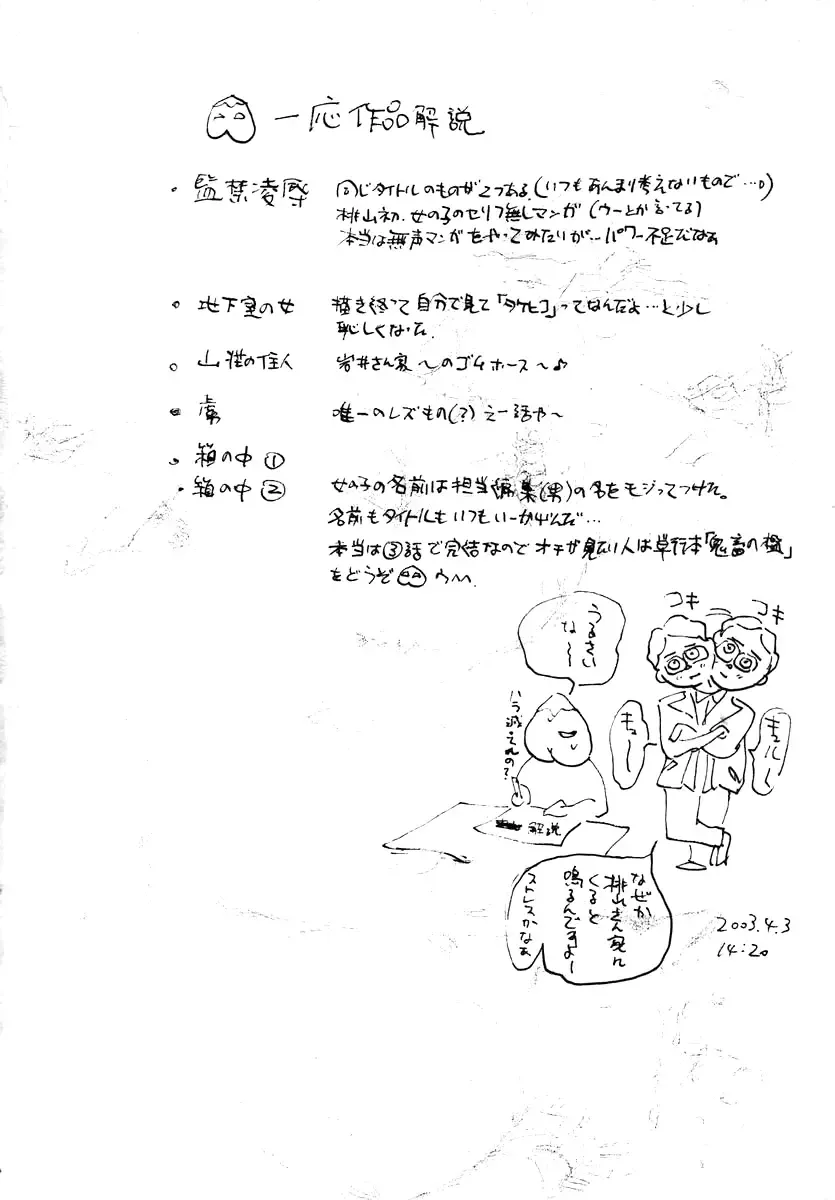 一応作品解説
・監禁凌辱 同じタイトルのものが2つある(いつもあんまり考えないもので…。)
桃山初、女の子のセリフ無しマンガ(ウーとか言ってる)
本当は無声マンガをやってみたいが…パワー不足だなぁ
・地下室の女 描き終って自分で見て「タケヒコ」ってなんだよ…と少し
恥しくなった
・山荘の住人 岩井さん家〜のゴムホース〜♪
・虜 唯一のレズもの(?)えー話や〜
・箱の中①
・箱の中② 女の子の名前は担当編集(男)の名をモジってつけた。
名前もタイトルもいつもいーかげんだ…
本当は③話で完結なのでオチが見たい人は単行本「鬼畜の檻」
をどうぞ
コキ
コキ
うるさい
な〜
ハラ減ってんの?
キュ〜
キュル〜
解説
なぜか
桃山さん家に
くると
鳴るんですよ〜
ストレスかなぁ
2003.4.3
14:20